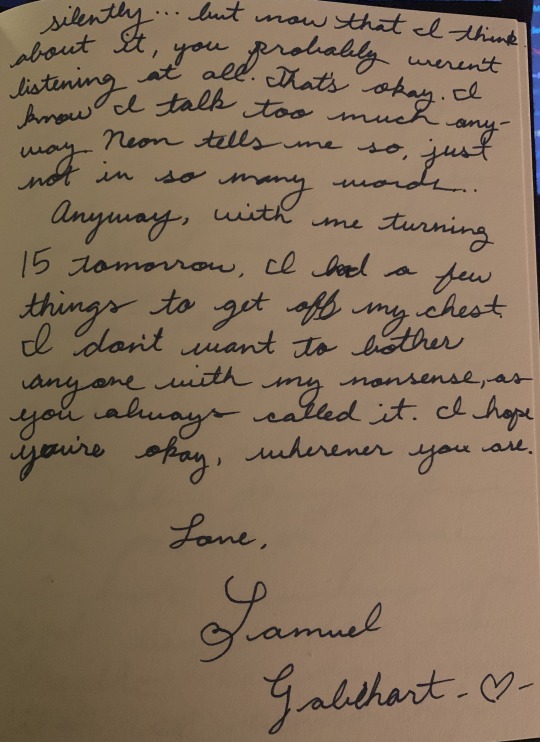 silently... but now that I think
about it, you probably weren't
listening at all. That's okay. I
know I talk too much any-
way. Neon tells me so, just
not in so many words..
Anyway, with me turning
15 tomorrow, I had a few
things to get off my chest.
I don't want to bother
anyone with my nonsense, as
you always called it. I hope
you're okay, wherever you are.
Love,
Samuel
Galehart -♡-